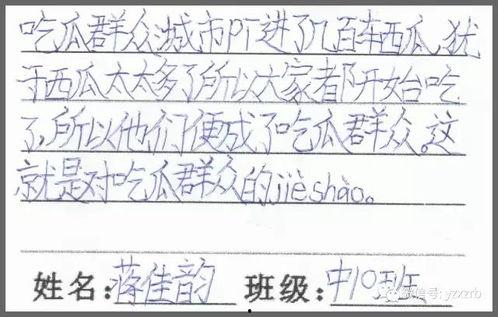 吃瓜群众:城市进了几百车西瓜,犹
于西瓜太太多了所以大家都开始吃
了,所以他们便成了吃瓜群众。这
就是对吃瓜群众的jièshào。
姓名:蒋佳韵 班级:中10班
微信号: yzxzrb